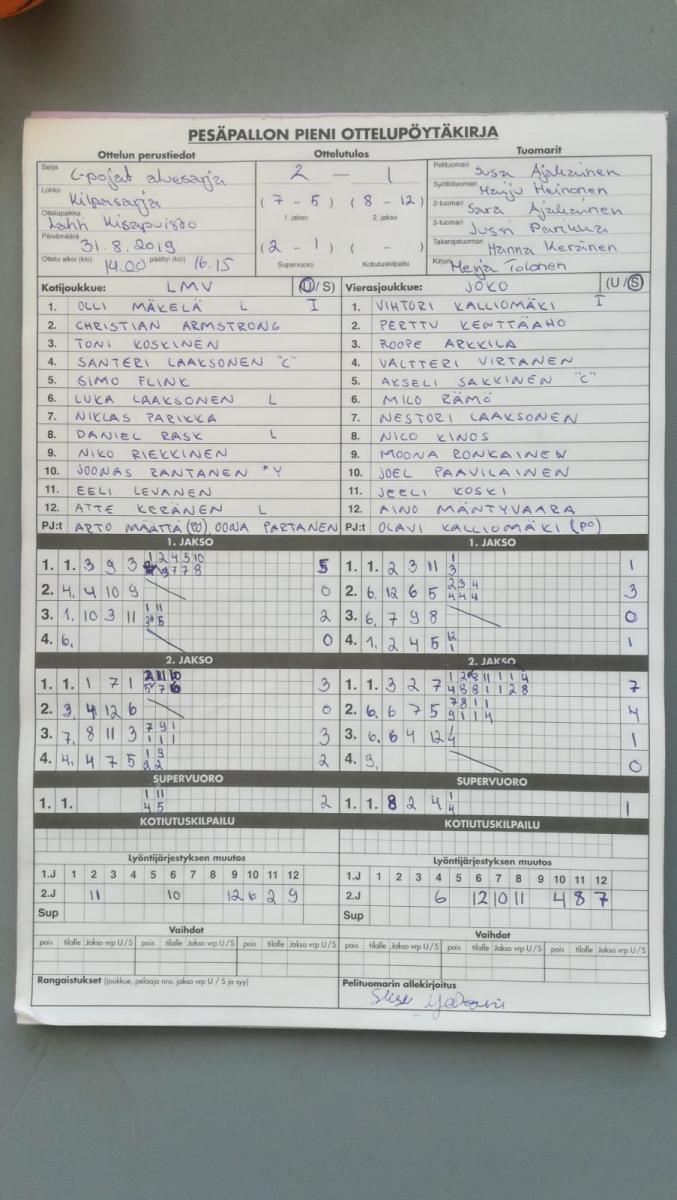 PESÄPALLON PIENI OTTELUPÖYTÄKIRJA
Ottelun perustiedot
Sarja C-pojat aluesarja
Lohko Kilpasarja
Ottelupaikka Lahti Kisapuisto
Päivämäärä 31.8.2019
Ottelu alkoi (klo) 14.00 päättyi (klo) 16.15
Ottelutulos
2 - 1
(7 - 5) (8 - 12)
1. jakso 2. jakso
(2 - 1) ( - )
Supervuoro Kotiutuskilpailu
Tuomarit
Pelituomari Susa
Syöttötuomari Marju Heinonen
2-tuomari Sara
3-tuomari Jussi Parikka
Takarajatuomari Hanna Keränen
Kirjuri Merja Tolonen
Kotijoukkue: LMV (U/S)
1. OLLI MÄKELÄ L I
2. CHRISTIAN ARMSTRONG
3. TONI KOSKINEN
4. SANTERI LAAKSONEN "C"
5. SIMO FLINK
6. LUKA LAAKSONEN L
7. NIKLAS PARIKKA
8. DANIEL RASK L
9. NIKO RIEKKINEN
10. JOONAS RANTANEN *Y
11. EELI LEVANEN
12. ATTE KERÄNEN L
PJ:t ARTO MÄÄTTÄ (PO) OONA PARTANEN
Vierasjoukkue: JOKO (U/S)
1. VIHTORI KALLIOMÄKI I
2. PERTTU KENTTÄAHO
3. ROOPE ARKKILA
4. VALTTERI VIRTANEN
5. AKSELI SAKKINEN "C"
6. MILO RÄMÖ
7. NESTORI LAAKSONEN
8. NICO KINOS
9. MOONA RONKAINEN
10. JOEL PAAVILAINEN
11. JEELI KOSKI
12. AINO MÄNTYVAARA
PJ:t OLAVI KALLIOMÄKI (PO)
1. JAKSO
1. 1. 3 9 3 5
2. 4. 4 10 9 0
3. 1. 10 3 11 2
4. 6. 0
1. JAKSO
1. 1. 2 3 11 1
2. 6. 12 6 5 2 3 4 3
4 4 4
3. 6. 7 9 8 0
4. 1. 2 4 5 12 1
1
2. JAKSO
1. 1. 1 7 1 3
2. 3. 4 12 6 0
3. 7. 8 11 3 7 9 1 3
1 1 1
4. 4. 4 7 5 1 9 2
2 2
2. JAKSO
1. 1. 3 2 7 7
4 8 8 1 1 2 8
2. 6. 6 7 5 7 8 1 1 4
9 1 1 4
3. 6. 6 4 12 1
4. 9. 0
SUPERVUORO
1. 1. 1 11 2
4 5
SUPERVUORO
1. 1. 8 2 4 1 1
4
KOTIUTUSKILPAILU
KOTIUTUSKILPAILU
Lyöntijärjestyksen muutos
1.J 1 2 3 4 5 6 7 8 9 10 11 12
2.J 11 10 12 6 2 9
Sup
Lyöntijärjestyksen muutos
1.J 1 2 3 4 5 6 7 8 9 10 11 12
2.J 6 12 10 11 4 8 7
Sup
Vaihdot
pois tilalle Jakso vrp U/S pois tilalle Jakso vrp U/S pois tilalle Jakso vrp U/S
Vaihdot
pois tilalle Jakso vrp U/S pois tilalle Jakso vrp U/S pois tilalle Jakso vrp U/S
Rangaistukset (joukkue, pelaaja nro, jakso vrp U / S ja syy)
Pelituomarin allekirjoitus